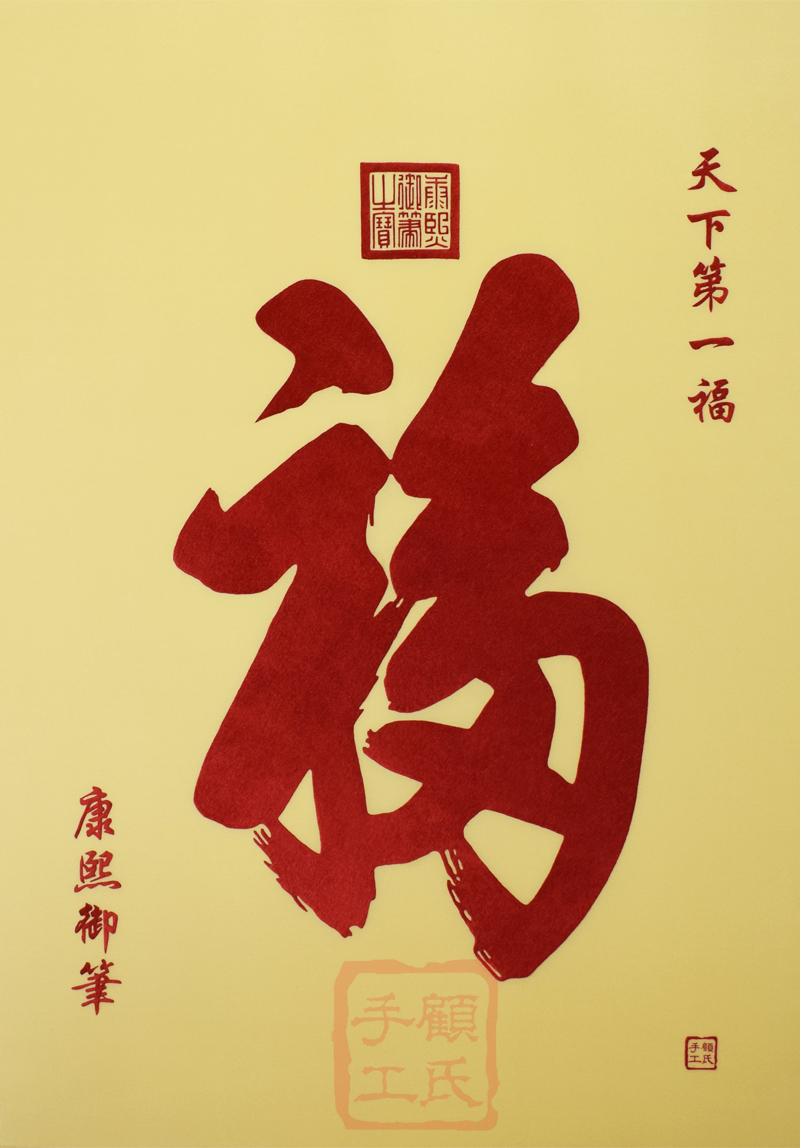 天下第一福
康熙御筆之寶
福
康熙御筆
顧氏手工
顧氏手工